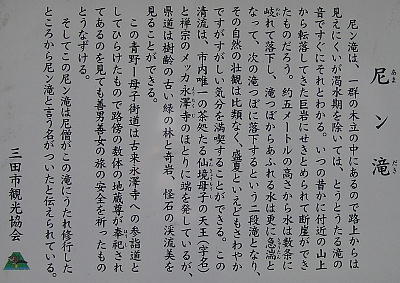 尼ン滝
あま だき
尼ン滝は、一群の木立の中にあるので路上からは
見えにくいが渇水期を除いては、とうとうたる滝の
音ですぐにそれとわかる。いつの昔かに付近の山上
から転落してきた巨岩にせきとめられて断崖ができ
たものだろう。約五メートルの高さから水は数条に
岐れて落下し、滝つぼからあふれる水は更に急湍と
なって、次の滝つぼに落下するという二段滝となり、
その自然の壮観は比類なく、盛夏といえどもさわやか
ですがすがしい気分を満喫することができる。この
清流は、市内唯一の茶処たる仙境母子の天王(字名)
と禅宗のメッカ永澤寺のほとりに端を発しているが、
県道は樹齢の古い緑の林と奇岩、怪石の渓流美を
見ることができる。
この青野ー母子街道は古来永澤寺への参詣道と
してひらけたもので路傍の数体の地蔵尊が奉祀され
てあるのを見ても善男善女の旅の安全を祈ったもの
とうなずける。
そしてこの尼ン滝は尼僧がこの滝にうたれ修行した
ところから尼ン滝と言う名がついたと伝えられている。
三田市観光協会